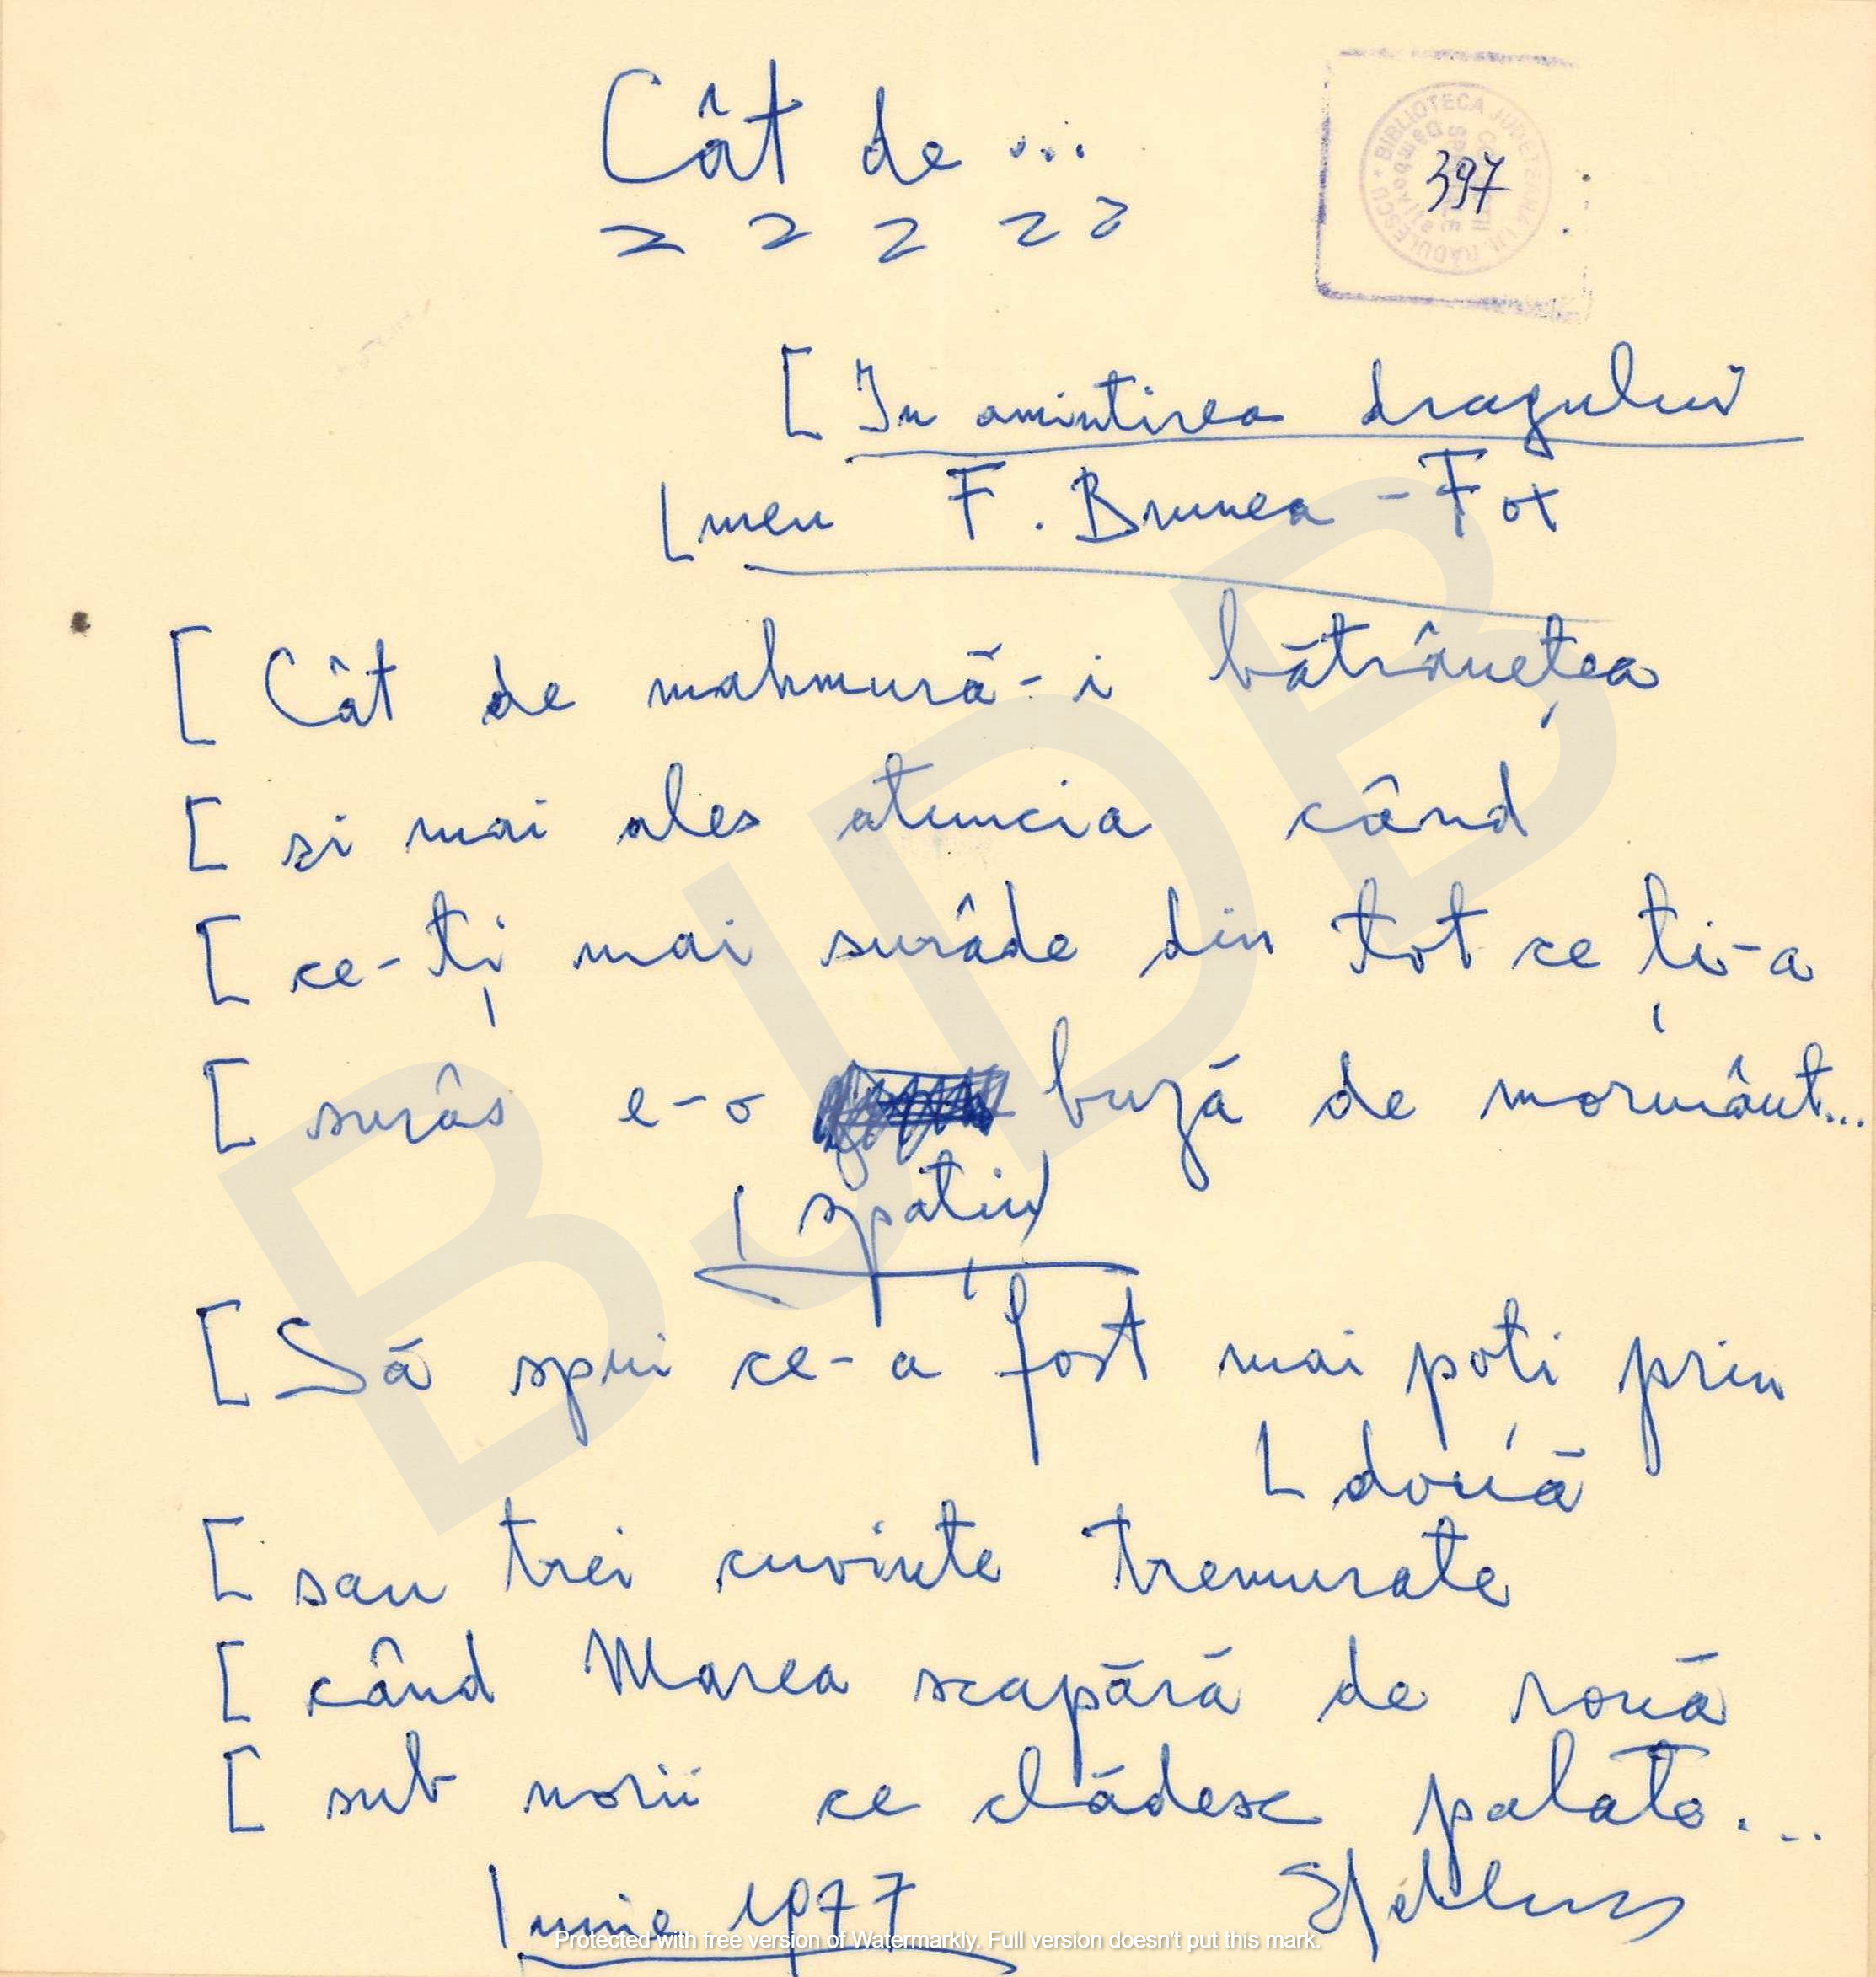 Cât de ...
BIBLIOTECA JUDEȚEANĂ I.H. RĂDULESCU
397
[ In amintirea dragului
[ meu F. Brunea - Fox
[ Cât de mahmură-i bătrânețea
[ si mai ales atuncia când
[ ce-ți mai surâde din tot ce ți-a
[ surâs e-o buză de mormânt...
( spațiu)
[ Să spui ce-a fost mai poți prin
[ două
[ sau trei cuvinte tremurate
[ când Marea scapără de rouă
[ sub norii ce clădesc palate...
Iunie 1977
BJDB
Protected with free version of Watermarkly. Full version doesn't put this mark.